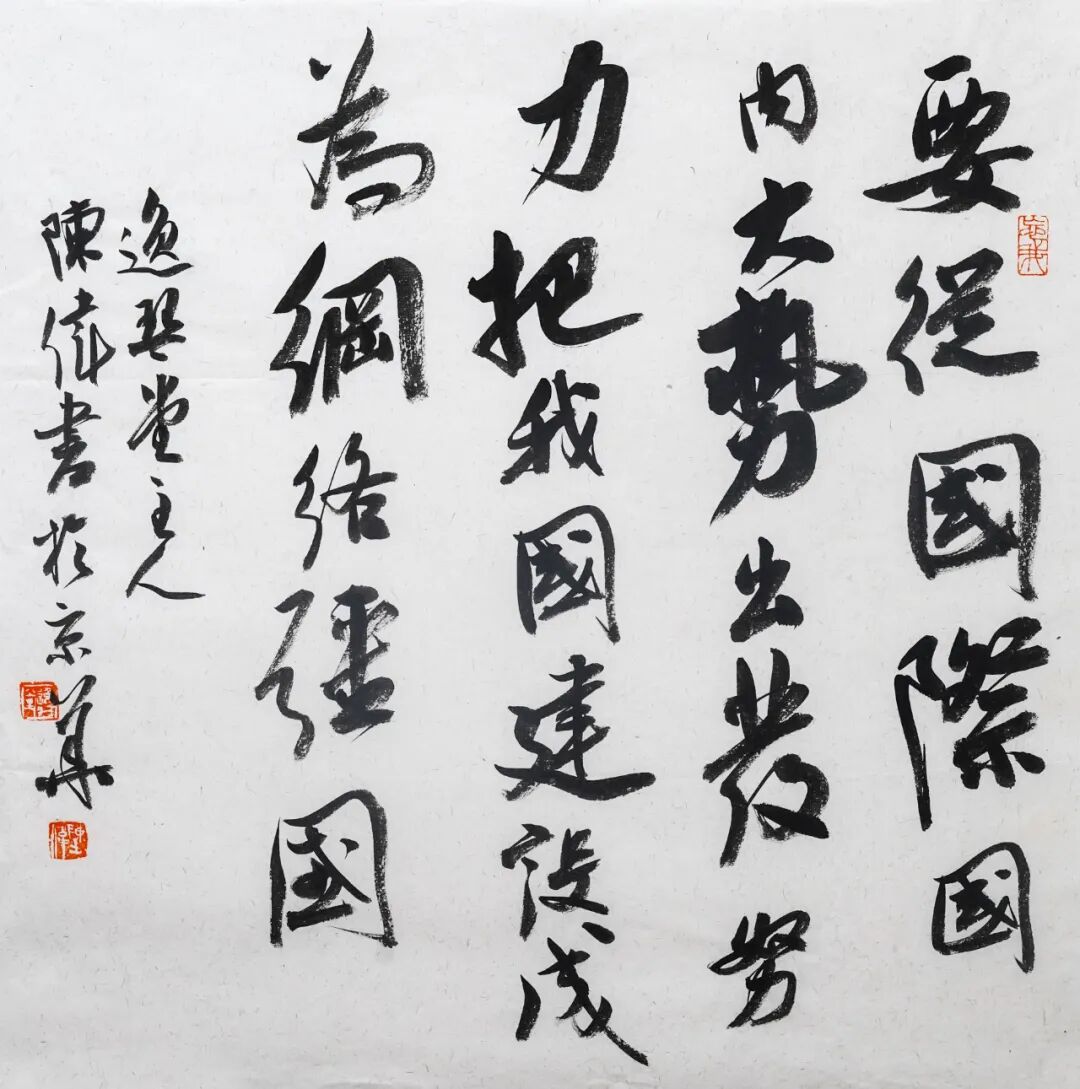 要從國際國
内大勢出發努
力把我國建設成
為網絡强国
逸琴堂主人
陳偉書於京華